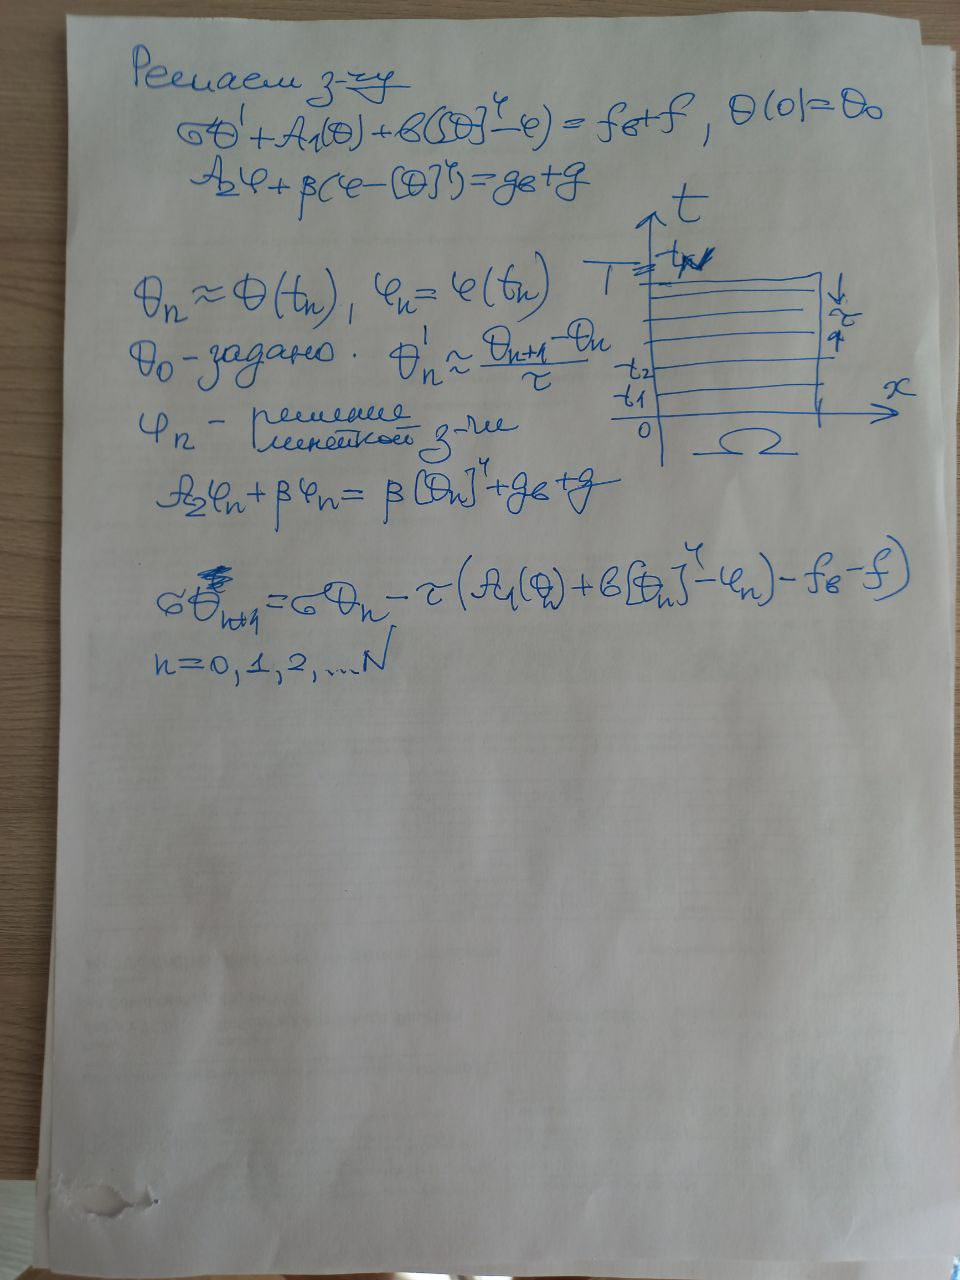 Решаем з-чу
σθ' + A₁(θ) + b([θ]⁴ - φ) = f_b + f, θ(0) = θ₀
A₂φ + β(φ - [θ]⁴) = g_b + g
t
T t_N
θₙ ≈ θ(tₙ), φₙ = φ(tₙ)
τ
θ₀ - задано. θ'ₙ ≈ (θₙ₊₁ - θₙ)/τ
t₂
t₁
x
φₙ - решение линейной з-чи
0
Ω
A₂φₙ + βφₙ = β[θₙ]⁴ + g_b + g
σθₙ₊₁ = σθₙ - τ(A₁(θₙ) + b([θₙ]⁴ - φₙ) - f_b - f)
n = 0, 1, 2, ... N